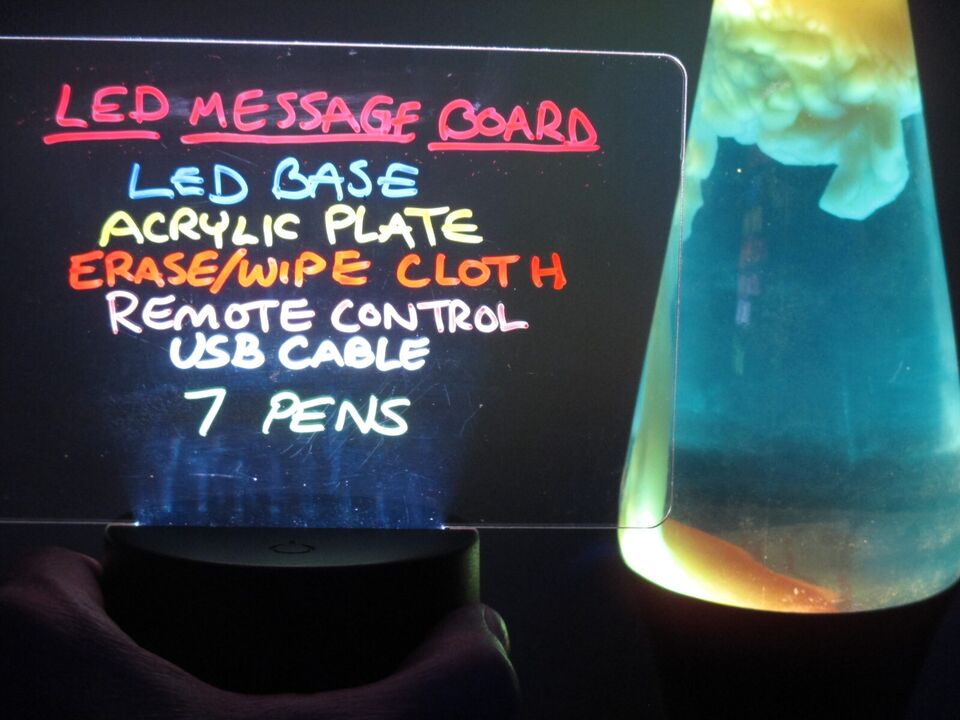 LED MESSAGE BOARD
LED BASE
ACRYLIC PLATE
ERASE/WIPE CLOTH
REMOTE CONTROL
USB CABLE
7 PENS